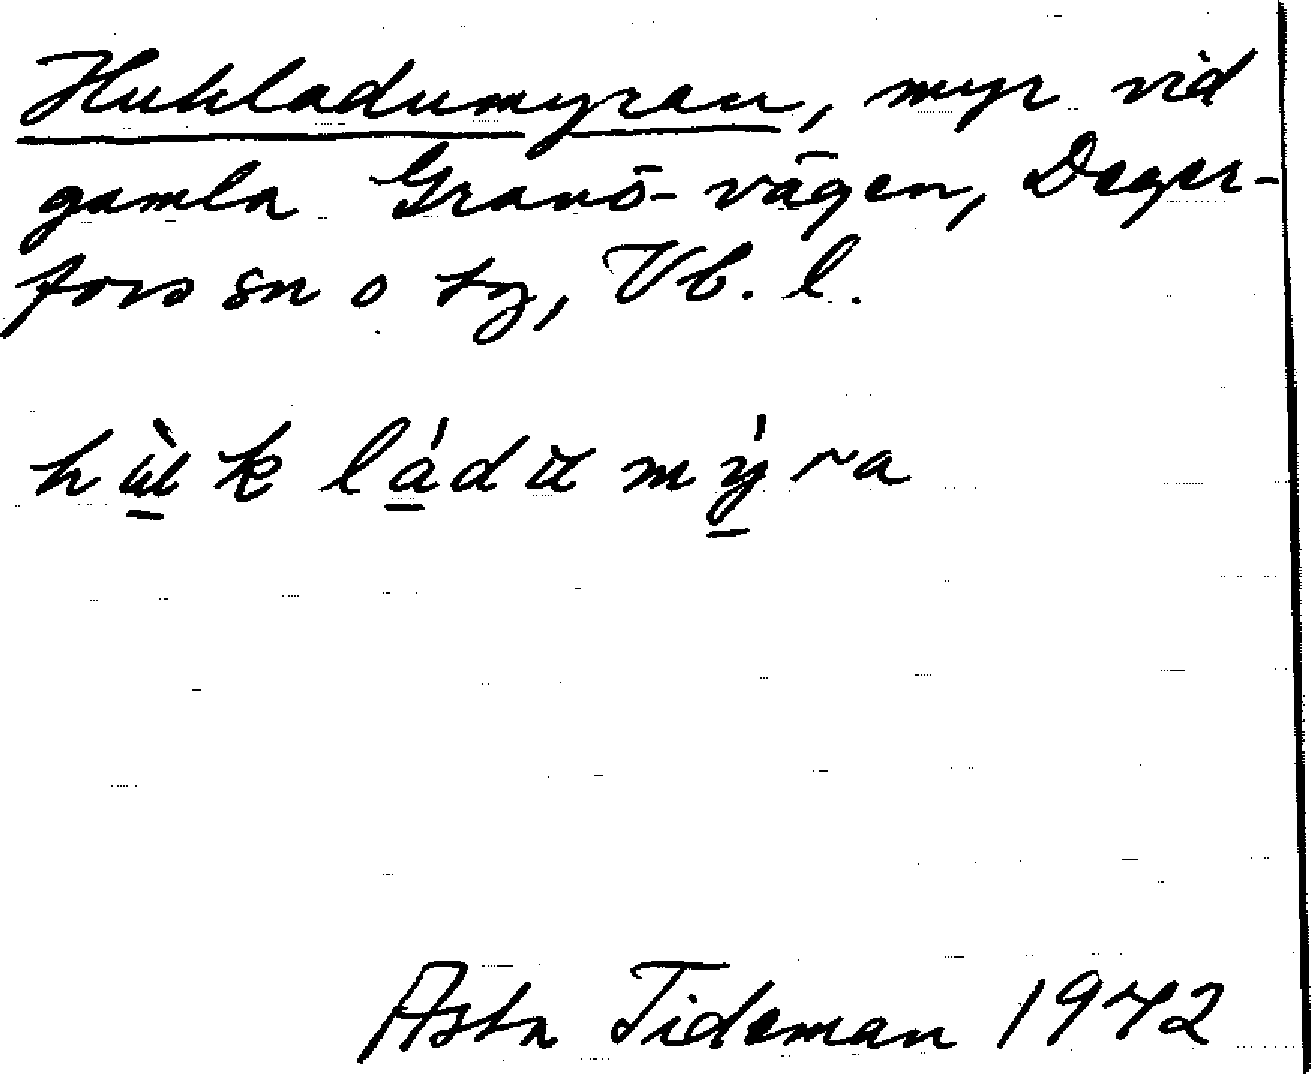 Hukladumyran, myr vid
gamla Granö-vägen, Deger-
fors sn o tg, Vb. l.
hùk ládu mýra
Asta Tideman 1972